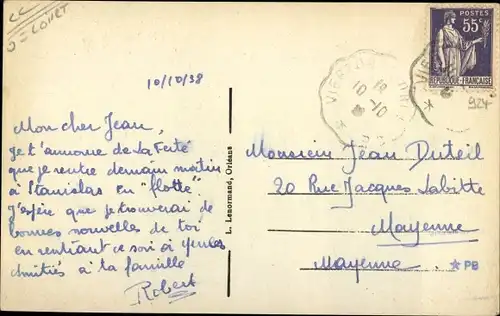 10/10/38
Mon cher Jean,
Je t'annonce de La Ferté
que je rentre demain matin
à Stanislas en "flotte".
J'espère que je trouverai de
bonnes nouvelles de toi
en rentrant ce soir à
amitiés à ta famille
Robert
L. Lenormand, Orléans
POSTES
55c
REPUBLIQUE-FRANÇAISE
924
VIERZON
10 -10
38
Monsieur Jean Duteil
20 Rue Jacques Labitte
Mayenne
Mayenne
*PB